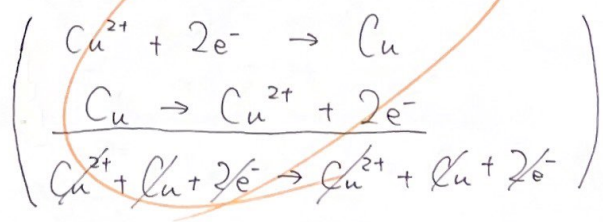 Cu²⁺ + 2e⁻ → Cu
Cu → Cu²⁺ + 2e⁻
Cu²⁺ + Cu + 2e⁻ → Cu²⁺ + Cu + 2e⁻